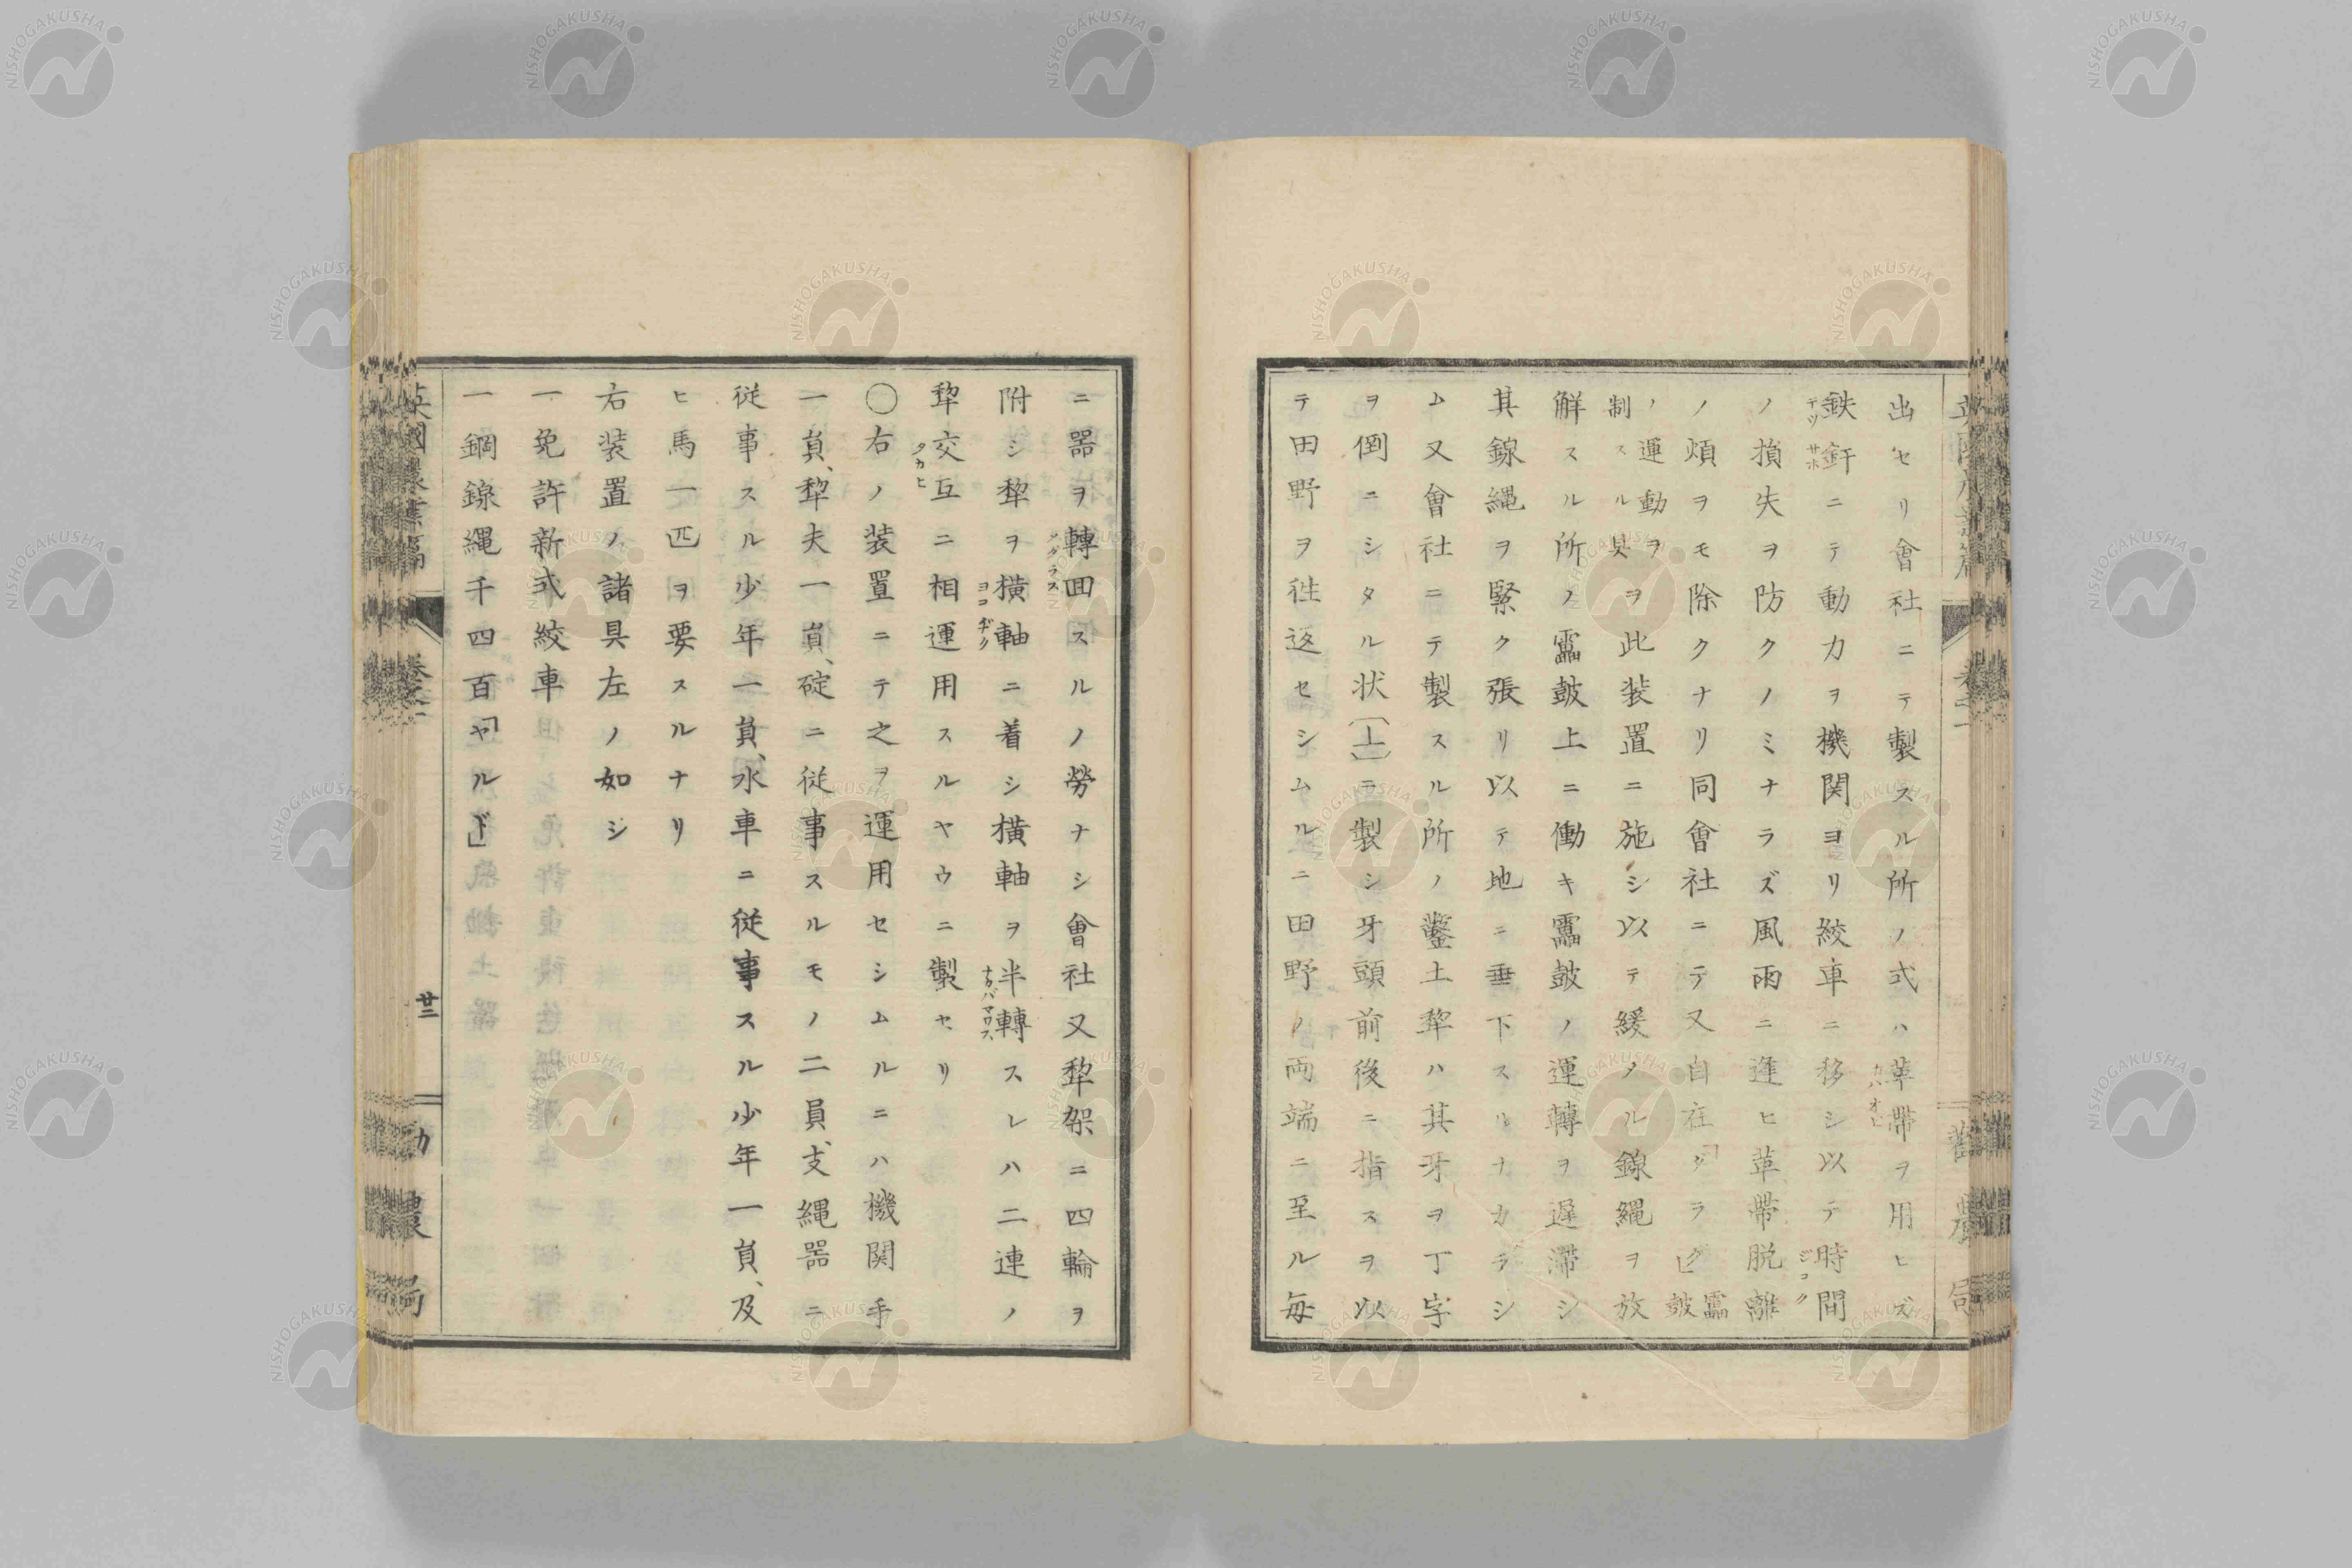 出セリ會社ニテ製スル所ノ式ハ革帶ヲ用ヒズ
鉄釬ニテ動力ヲ機関ヨリ絞車ニ移シ以テ時間
ノ損失ヲ防クノミナラズ風雨ニ逢ヒ革帶脱離
ノ煩ヲモ除クナリ同會社ニテ又自在
ノ運動ヲ
制スル具ヲ此装置ニ施シ以テ緩メル線縄ヲ放
解スル所ノ鼓上ニ働キ鼓ノ運轉ヲ遅滞シ
其線縄ヲ緊ク張リ以テ地ニ垂下スルナカラシ
ム又會社ニテ製スル所ノ鑿土犂ハ其牙ヲ丁字
ヲ倒ニシタル状〔丄〕ニ製シ牙頭前後ニ指スヲ以
テ田野ヲ往返セシムルニ田野ノ両端ニ至ル毎
ニ器ヲ轉囬スルノ勞ナシ會社又犂架ニ四輪ヲ
附シ犂ヲ横軸ニ着シ横軸ヲ半轉スレハ二連ノ
犂交互ニ相運用スルヤウニ製セリ
〇右ノ装置ニテ之ヲ運用セシムルニハ機関手
一員、犂夫一員、碇ニ従事スルモノ二員、支縄器ニ
従事スル少年一員、水車ニ従事スル少年一員、及
ヒ馬一匹ヲ要スルナリ
右装置ノ諸具左ノ如シ
一免許新式絞車
一鋼線縄千四百「ヤルド」
英國農業篇 卷之二 廿二 勸農局
NISHOGAKUSHA